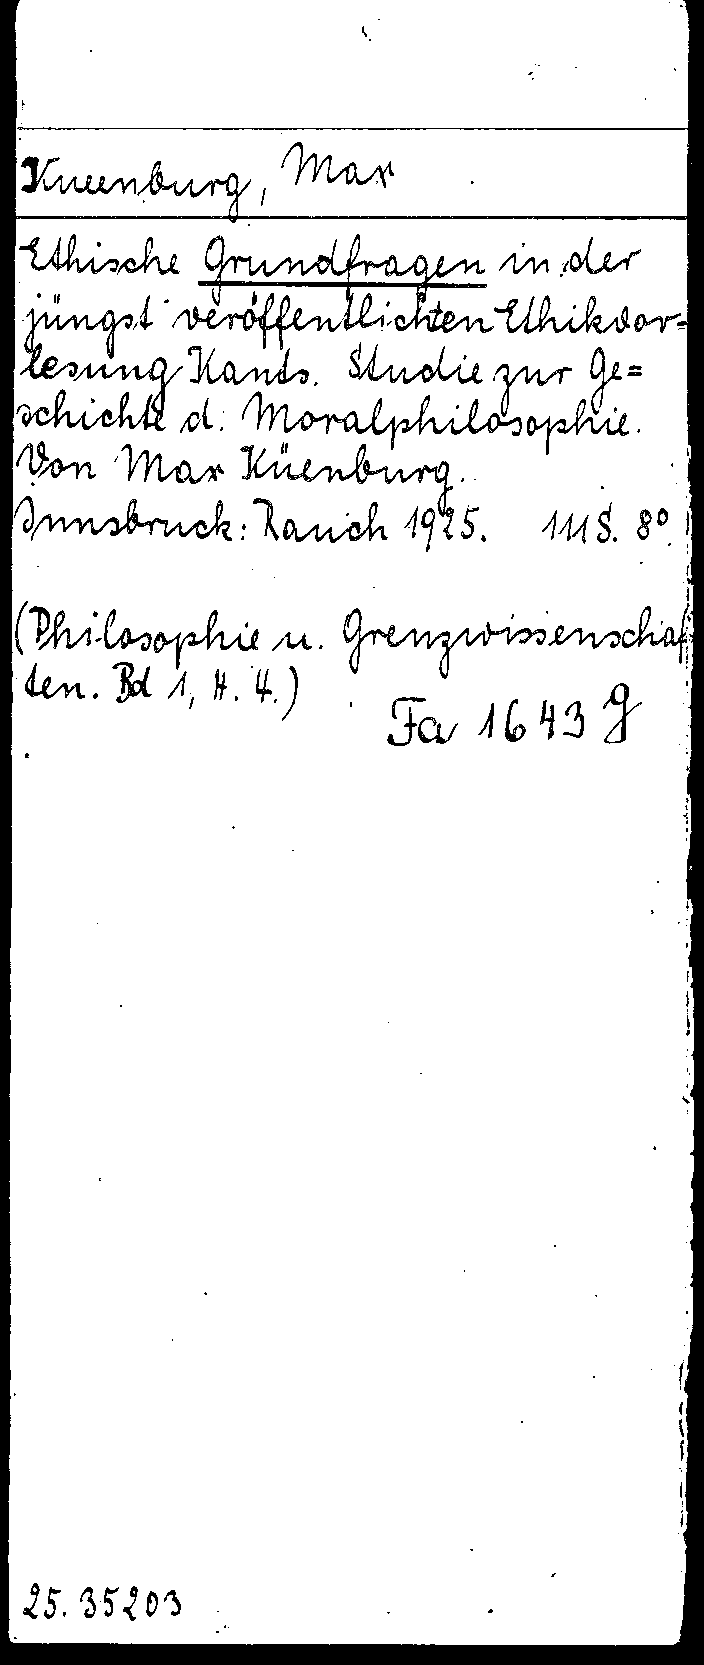 Kueenburg, Max
Ethische Grundfragen in der
jüngst veröffentlichten Ethikvor-
lesung Kants. Studie zur Ge=
schichte d. Moralphilosophie.
Von Max Küenburg.
Innsbruck: Rauch 1925. 111 S. 8°
(Philosophie u. Grenzwissenschaf
ten. Bd 1, H. 4.)
Fa 1643 g
25.35203